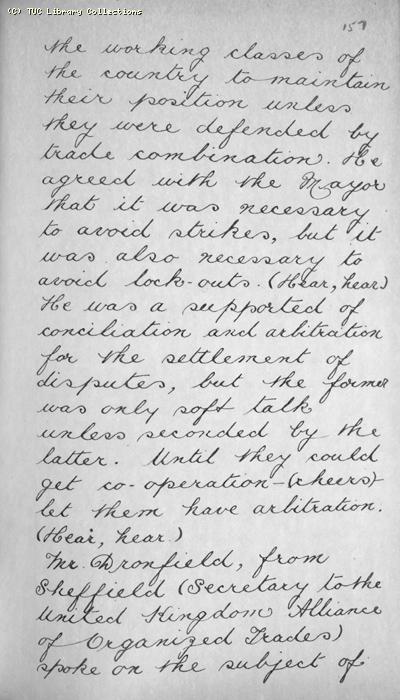 (C) TUC Library Collections
157
the working classes of
the country to maintain
their position unless
they were defended by
trade combination. He
agreed with the Mayor
that it was necessary
to avoid strikes, but it
was also necessary to
avoid lock-outs. (Hear, hear.)
He was a supported of
conciliation and arbitration
for the settlement of
disputes, but the former
was only soft talk
unless seconded by the
latter. Until they could
get co-operation-(cheers)-
let them have arbitration.
(Hear, hear.)
Mr. Dronfield, from
Sheffield (Secretary to the
United Kingdom Alliance
of Organized Trades)
spoke on the subject of